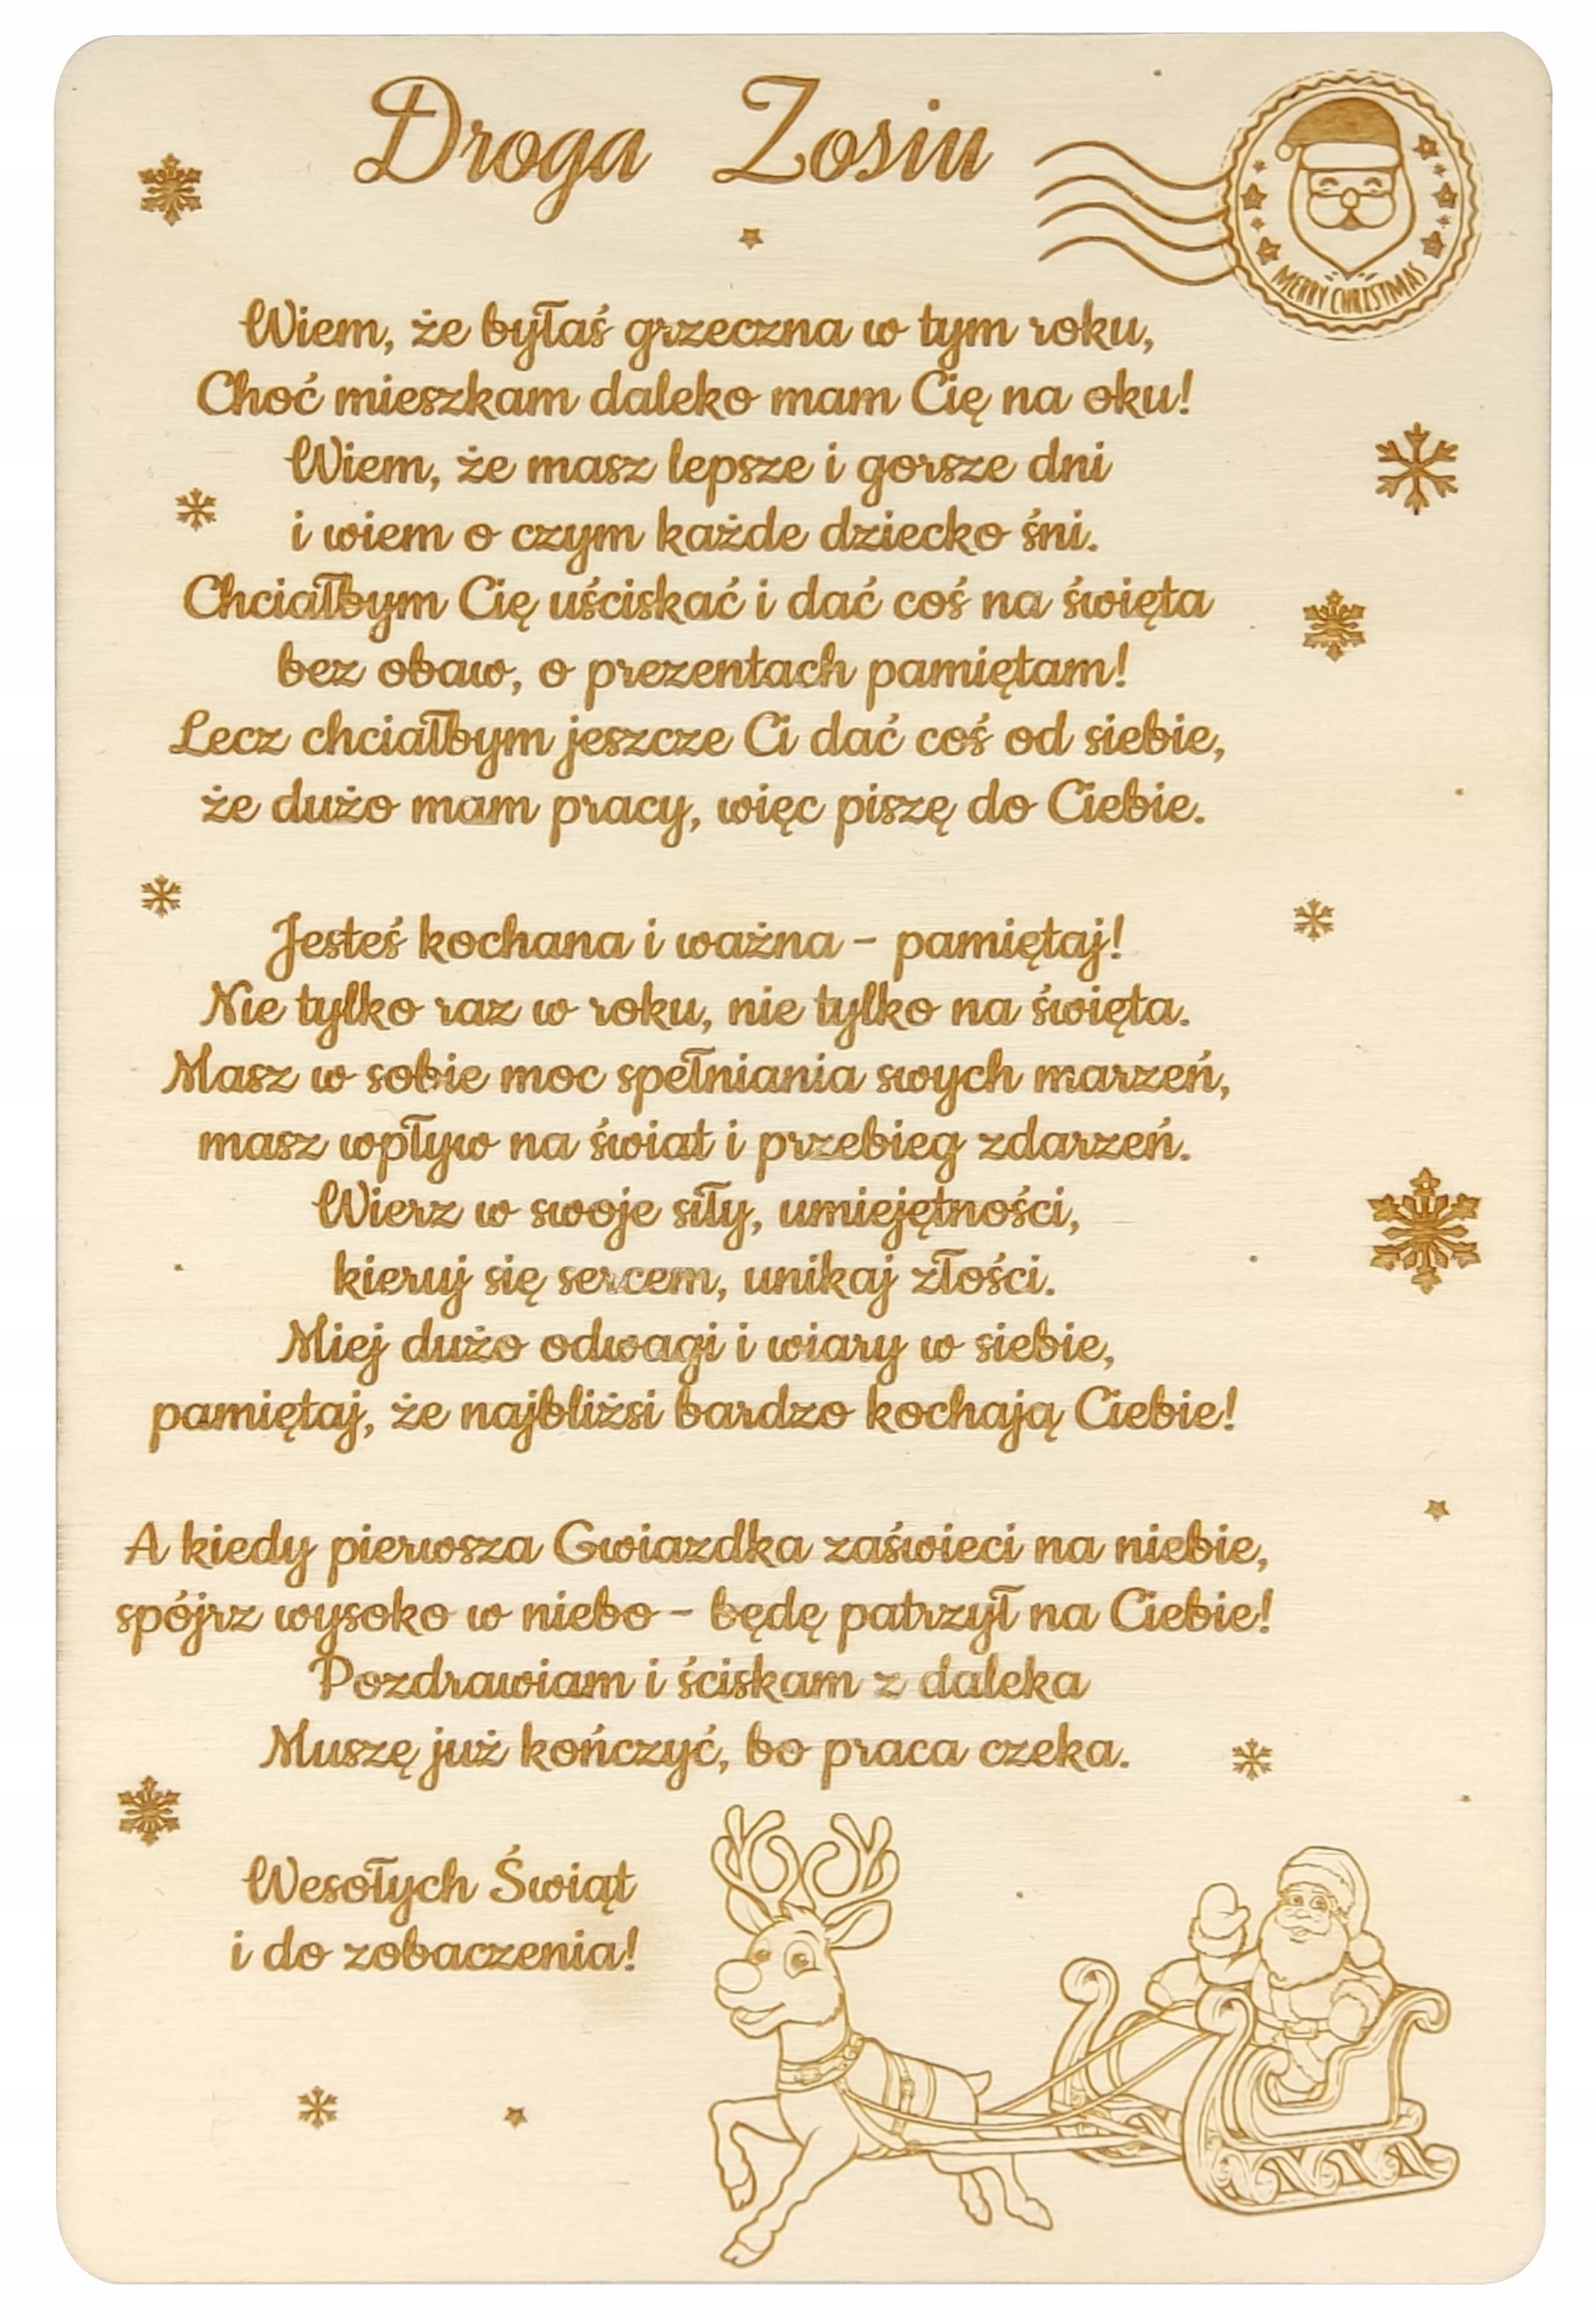 Droga Zosiu
MERRY CHRISTMAS
Wiem, że byłaś grzeczna w tym roku,
Choć mieszkam daleko mam Cię na oku!
Wiem, że masz lepsze i gorsze dni
i wiem o czym każde dziecko śni.
Chciałbym Cię uściskać i dać coś na święta
bez obaw, o prezentach pamiętam!
Lecz chciałbym jeszcze Ci dać coś od siebie,
że dużo mam pracy, więc piszę do Ciebie.
Jesteś kochana i ważna - pamiętaj!
Nie tylko raz w roku, nie tylko na święta.
Masz w sobie moc spełniania swych marzeń,
masz wpływ na świat i przebieg zdarzeń.
Wierz w swoje siły, umiejętności,
kieruj się sercem, unikaj złości.
Miej dużo odwagi i wiary w siebie,
pamiętaj, że najbliżsi bardzo kochają Ciebie!
A kiedy pierwsza Gwiazdka zaświeci na niebie,
spójrz wysoko w niebo - będę patrzył na Ciebie!
Pozdrawiam i ściskam z daleka
Muszę już kończyć, bo praca czeka.
Wesołych Świąt
i do zobaczenia!